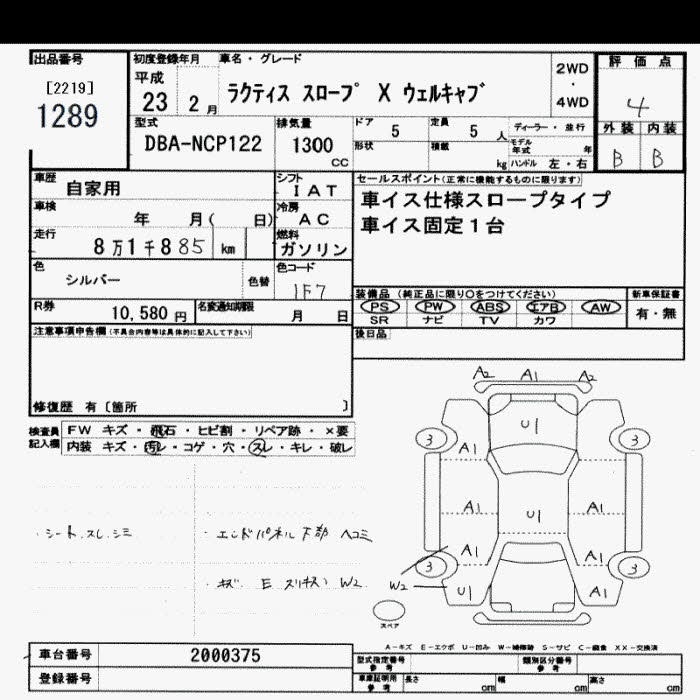 出品番号
[2219]
1289
初度登録年月
平成
23 2 月
車名・グレード
ラクティス スロープ X ウェルキャブ
2WD
・
4WD
評価点
4
外装 内装
B B
型式
DBA-NCP122
排気量
1300
CC
ドア
5
定員
5 人
形状
積載
kg
ディーラー・並行
モデル年式 年
ハンドル 左・右
車歴
自家用
シフト
IAT
車検
年 月( 日)
冷房
AC
走行
8万1千885 km
燃料
ガソリン
色
シルバー
色替
色コード
1F7
R券
10,580 円
名変通知期限
月 日
セールスポイント(正常に機能するものに限ります)
車イス仕様スロープタイプ
車イス固定1台
装備品 (純正品に限り○をつけてください)
PS PW ABS エアB AW
SR ナビ TV カワ
新車保証書
有・無
後日品
注意事項申告欄(不具合内容等は具体的に記入して下さい)
修復歴 有〔箇所 〕
検査員
記入欄
FW キズ・飛石・ヒビ割・リペア跡・×要
内装 キズ・汚レ・コゲ・穴・スレ・キレ・破レ
・シート、スレ、シミ
・エンドパネル下部 ヘコミ
W2
A2 A1 A2
U1
3 3
A1
A1 U1 A1
A1 A1
3 3
W2 U1 A1
スペア
A-キズ E-エクボ U-凹み W-補修跡 S-サビ C-腐食 XX-交換済
車台番号
2000375
登録番号
型式指定番号
参考
類別区分番号
参考
車庫証明用
参考
長さ cm
幅 cm
高さ cm